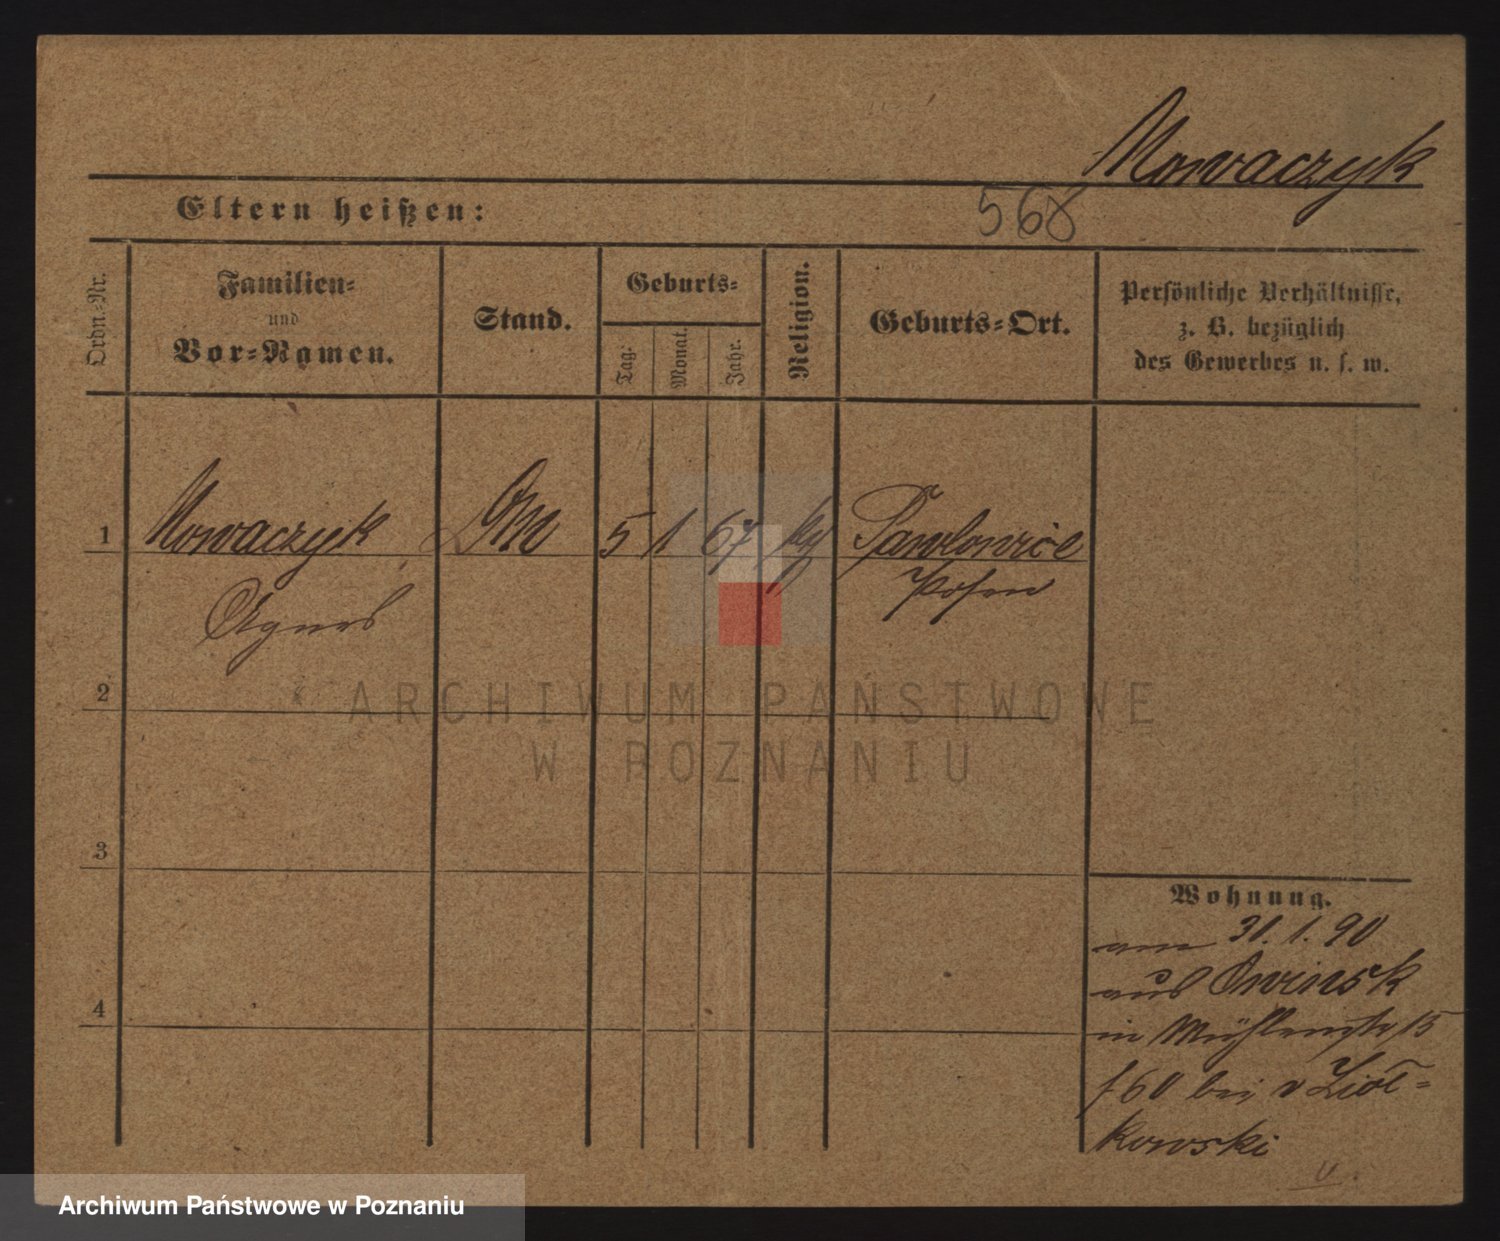 Nowaczyk
Eltern heißen:
568
Ordn.-Nr.
Familien-
und
Vor-Namen.
Stand.
Geburts-
Tag.
Monat.
Jahr.
Religion.
Geburts-Ort.
Persönliche Verhältnisse,
z. B. bezüglich
des Gewerbes u. s. w.
1 Nowaczyk DM 5 1 67 kg Pawlowice
Agnes Posen
2
ARCHIWUM PAŃSTWOWE
W POZNANIU
3
Wohnung.
am 31.1.90
aus Owinsk
in Mühlenstr 15
f 60 bei v Ziol-
kowski
4
Archiwum Państwowe w Poznaniu